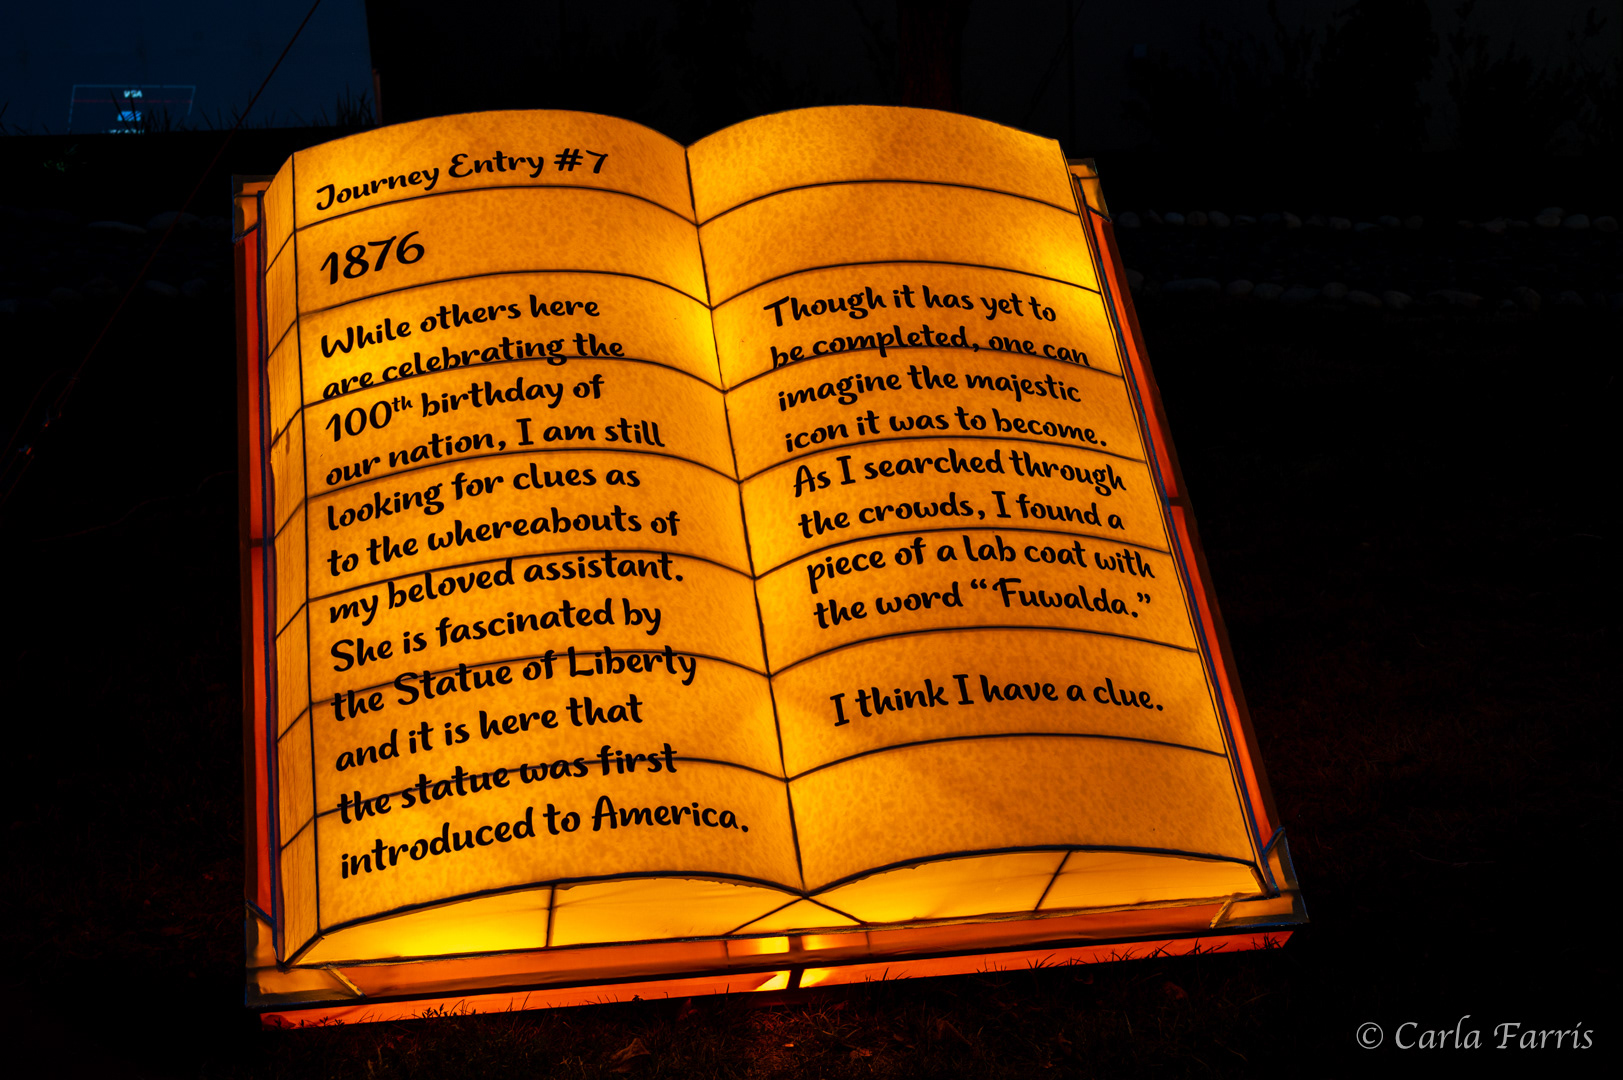 Journey Entry #7
1876
While others here
are celebrating the
100th birthday of
our nation, I am still
looking for clues as
to the whereabouts of
my beloved assistant.
She is fascinated by
the Statue of Liberty
and it is here that
the statue was first
introduced to America.
Though it has yet to
be completed, one can
imagine the majestic
icon it was to become.
As I searched through
the crowds, I found a
piece of a lab coat with
the word “Fuwalda.”
I think I have a clue.
© Carla Farris